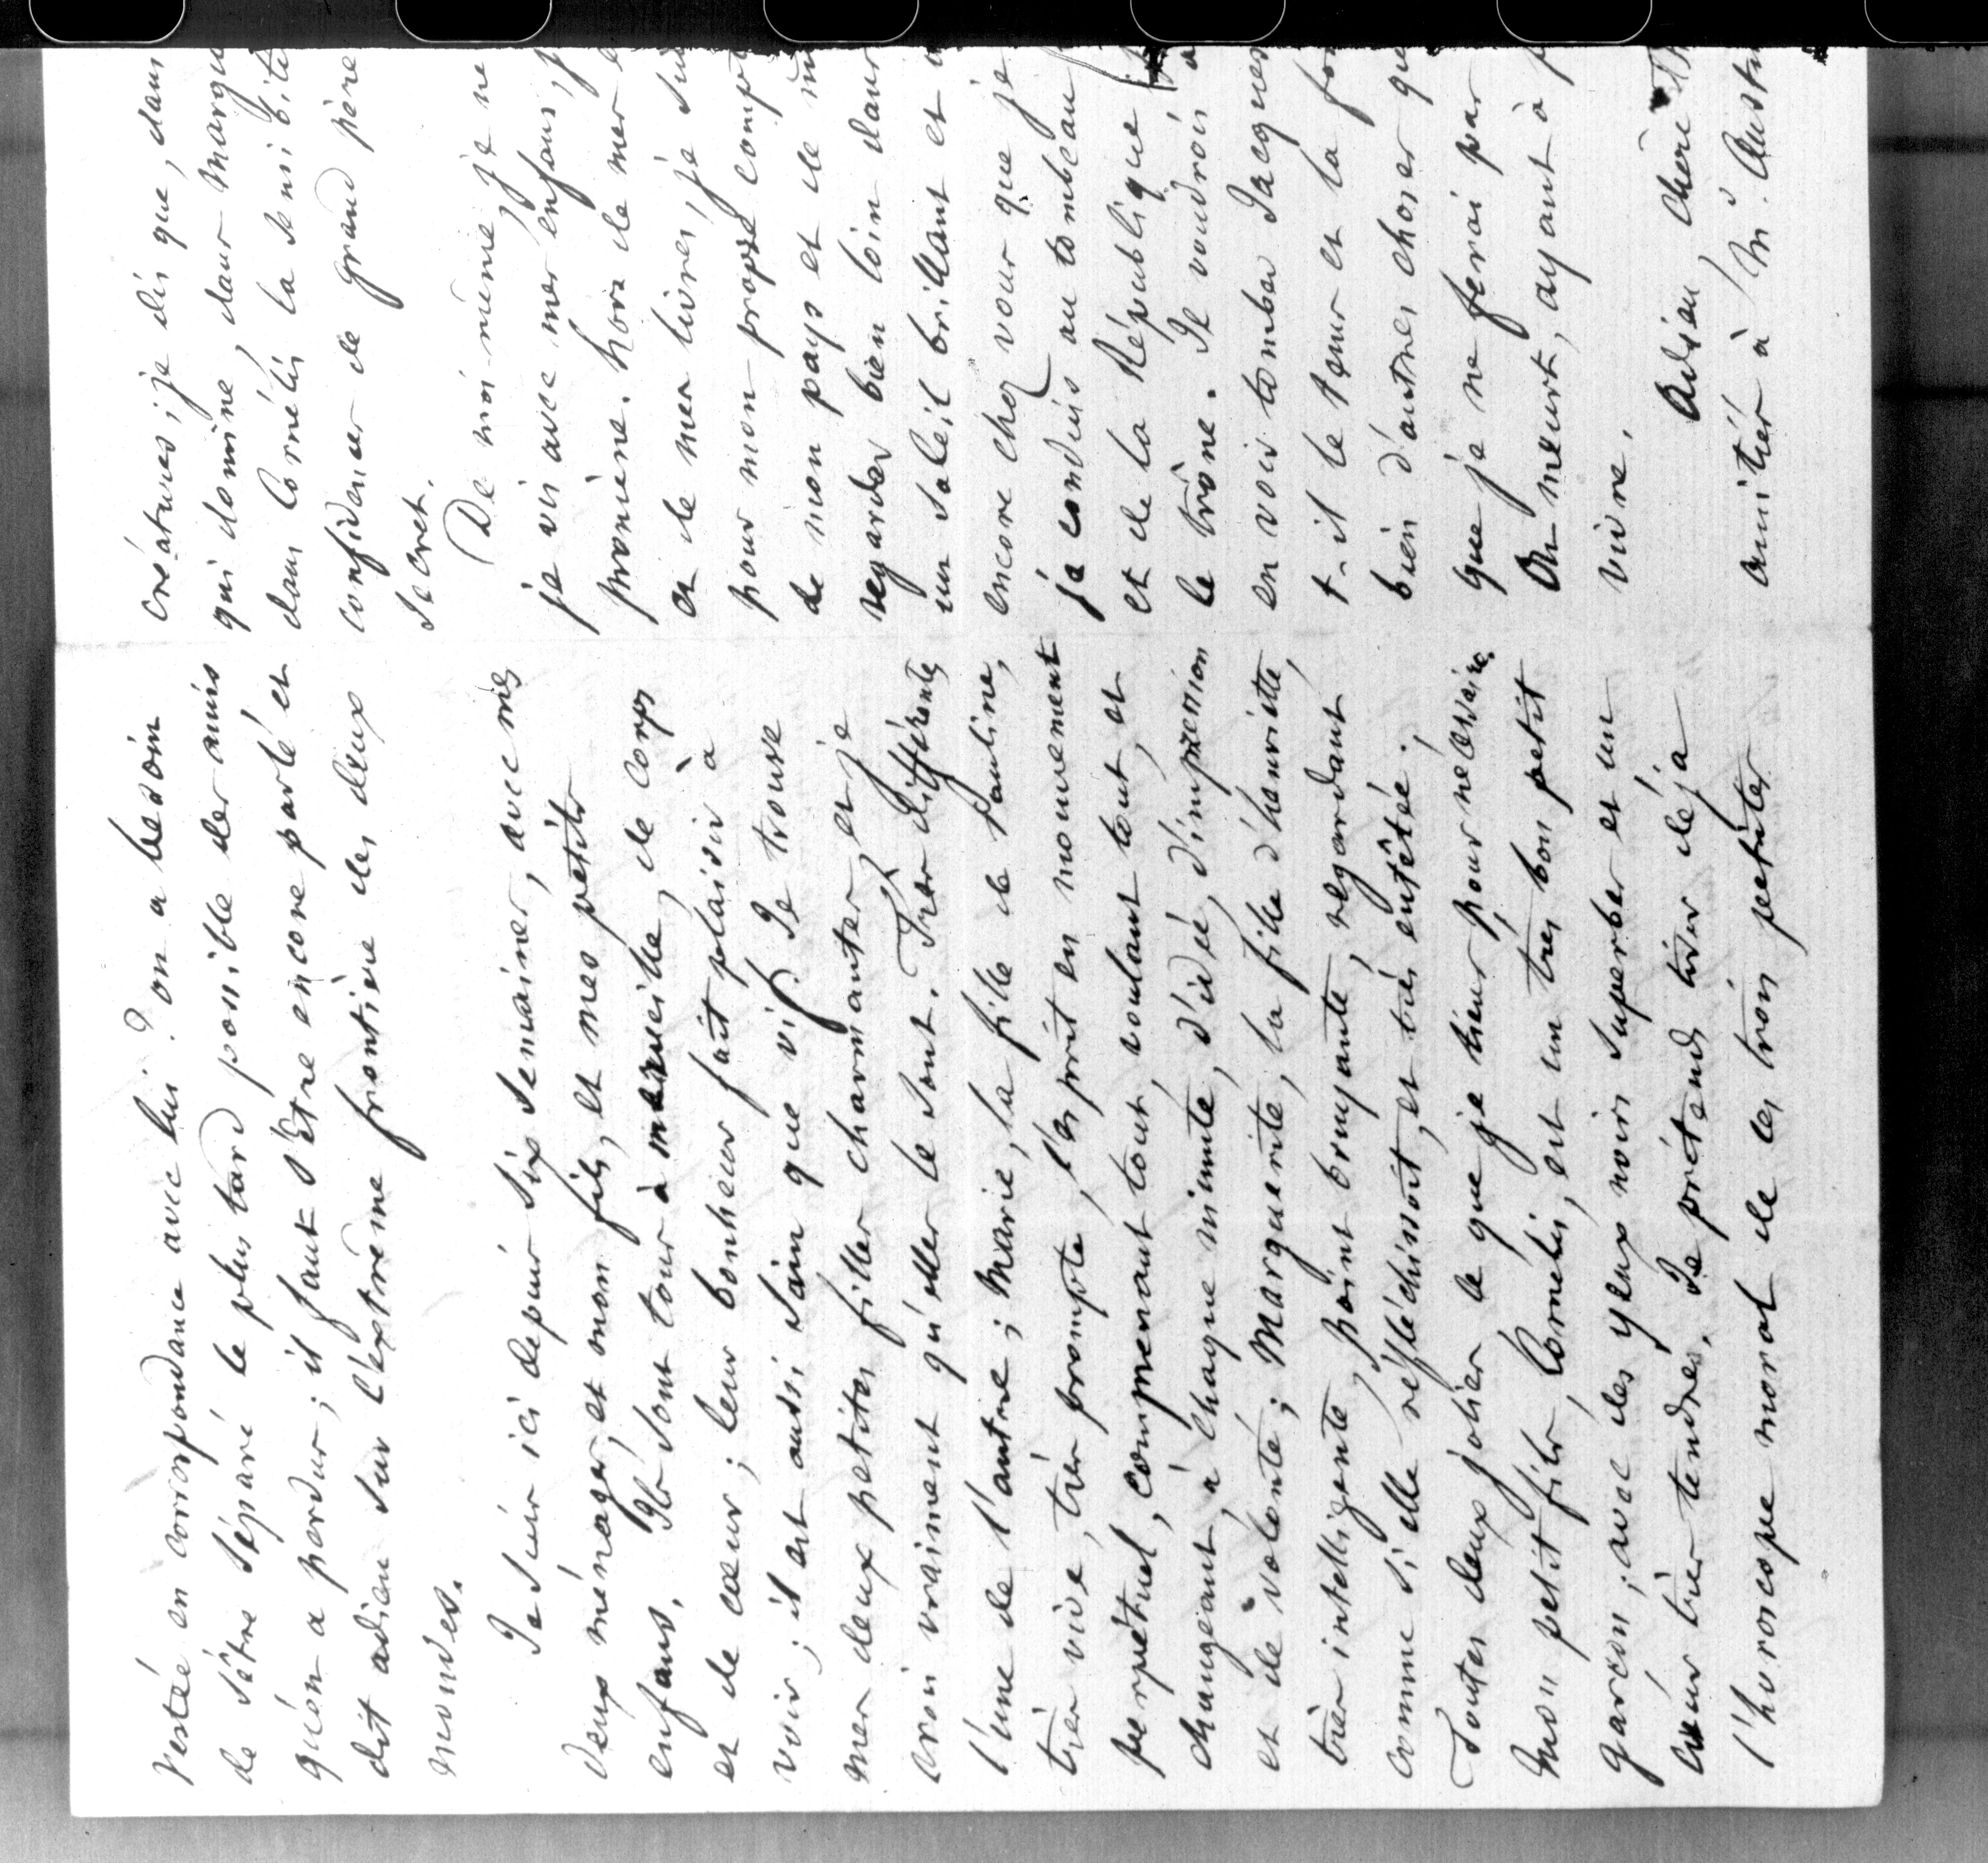 resté en correspondance avec lui? on a besoin
de s'être séparé le plus tard possible des amis
qu'on a perdus; il faut s'être encore parlé et
dit adieu sur l'extrême frontière des deux
mondes.
Je suis ici depuis six semaines, avec mes
deux ménages, et mon fils, et mes petits
enfans. Ils sont tous à merveille, de corps
et de cœur; leur bonheur fait plaisir à
voir; il est aussi sain que vif. Je trouve
mes deux petites filles charmantes, et je
crois vraiment qu'elles le sont. Très différentes
l'une de l'autre; Marie, la fille de Pauline,
très vive, très prompte, l'esprit en mouvement
perpétuel, comprenant tout, voulant tout, et
changeant, à chaque minute, d'idée, d'impression
et de volonté; Marguerite, la fille d'henriette,
très intelligente, point bruyante, regardant
comme si elle réfléchissoit, et très entêtée.
Toutes deux jolies ce que je tiens pour nécessaire.
Mon petit fils, Cornélis, est un très bon petit
garçon, avec des yeux noirs superbes et un
cœur très tendre. Je prétends tirer déjà
l'horoscope moral de ces trois petites
créatures; je dis que, dans
qui domine, dans Margue
dans Cornélis la sensibilité
confidences de grand père
secret.
De moi-même, je ne
je vis avec mes enfans, j
promène. hors de mes e
et de mes livres, je suis
pour mon propre compte
de mon pays et de m
regarder bien loin dans
un soleil brillant et
encore chez vous que je
ja conduis au tombeau
et de la République
le trône. Je voudrois
en voir tomber Jacques
t-il le tour et la for
bien d'autres choses que
que je ne ferai par
On meurt, ayant à p
vivre.
Adieu, chère
amitiés à Mr. Austin